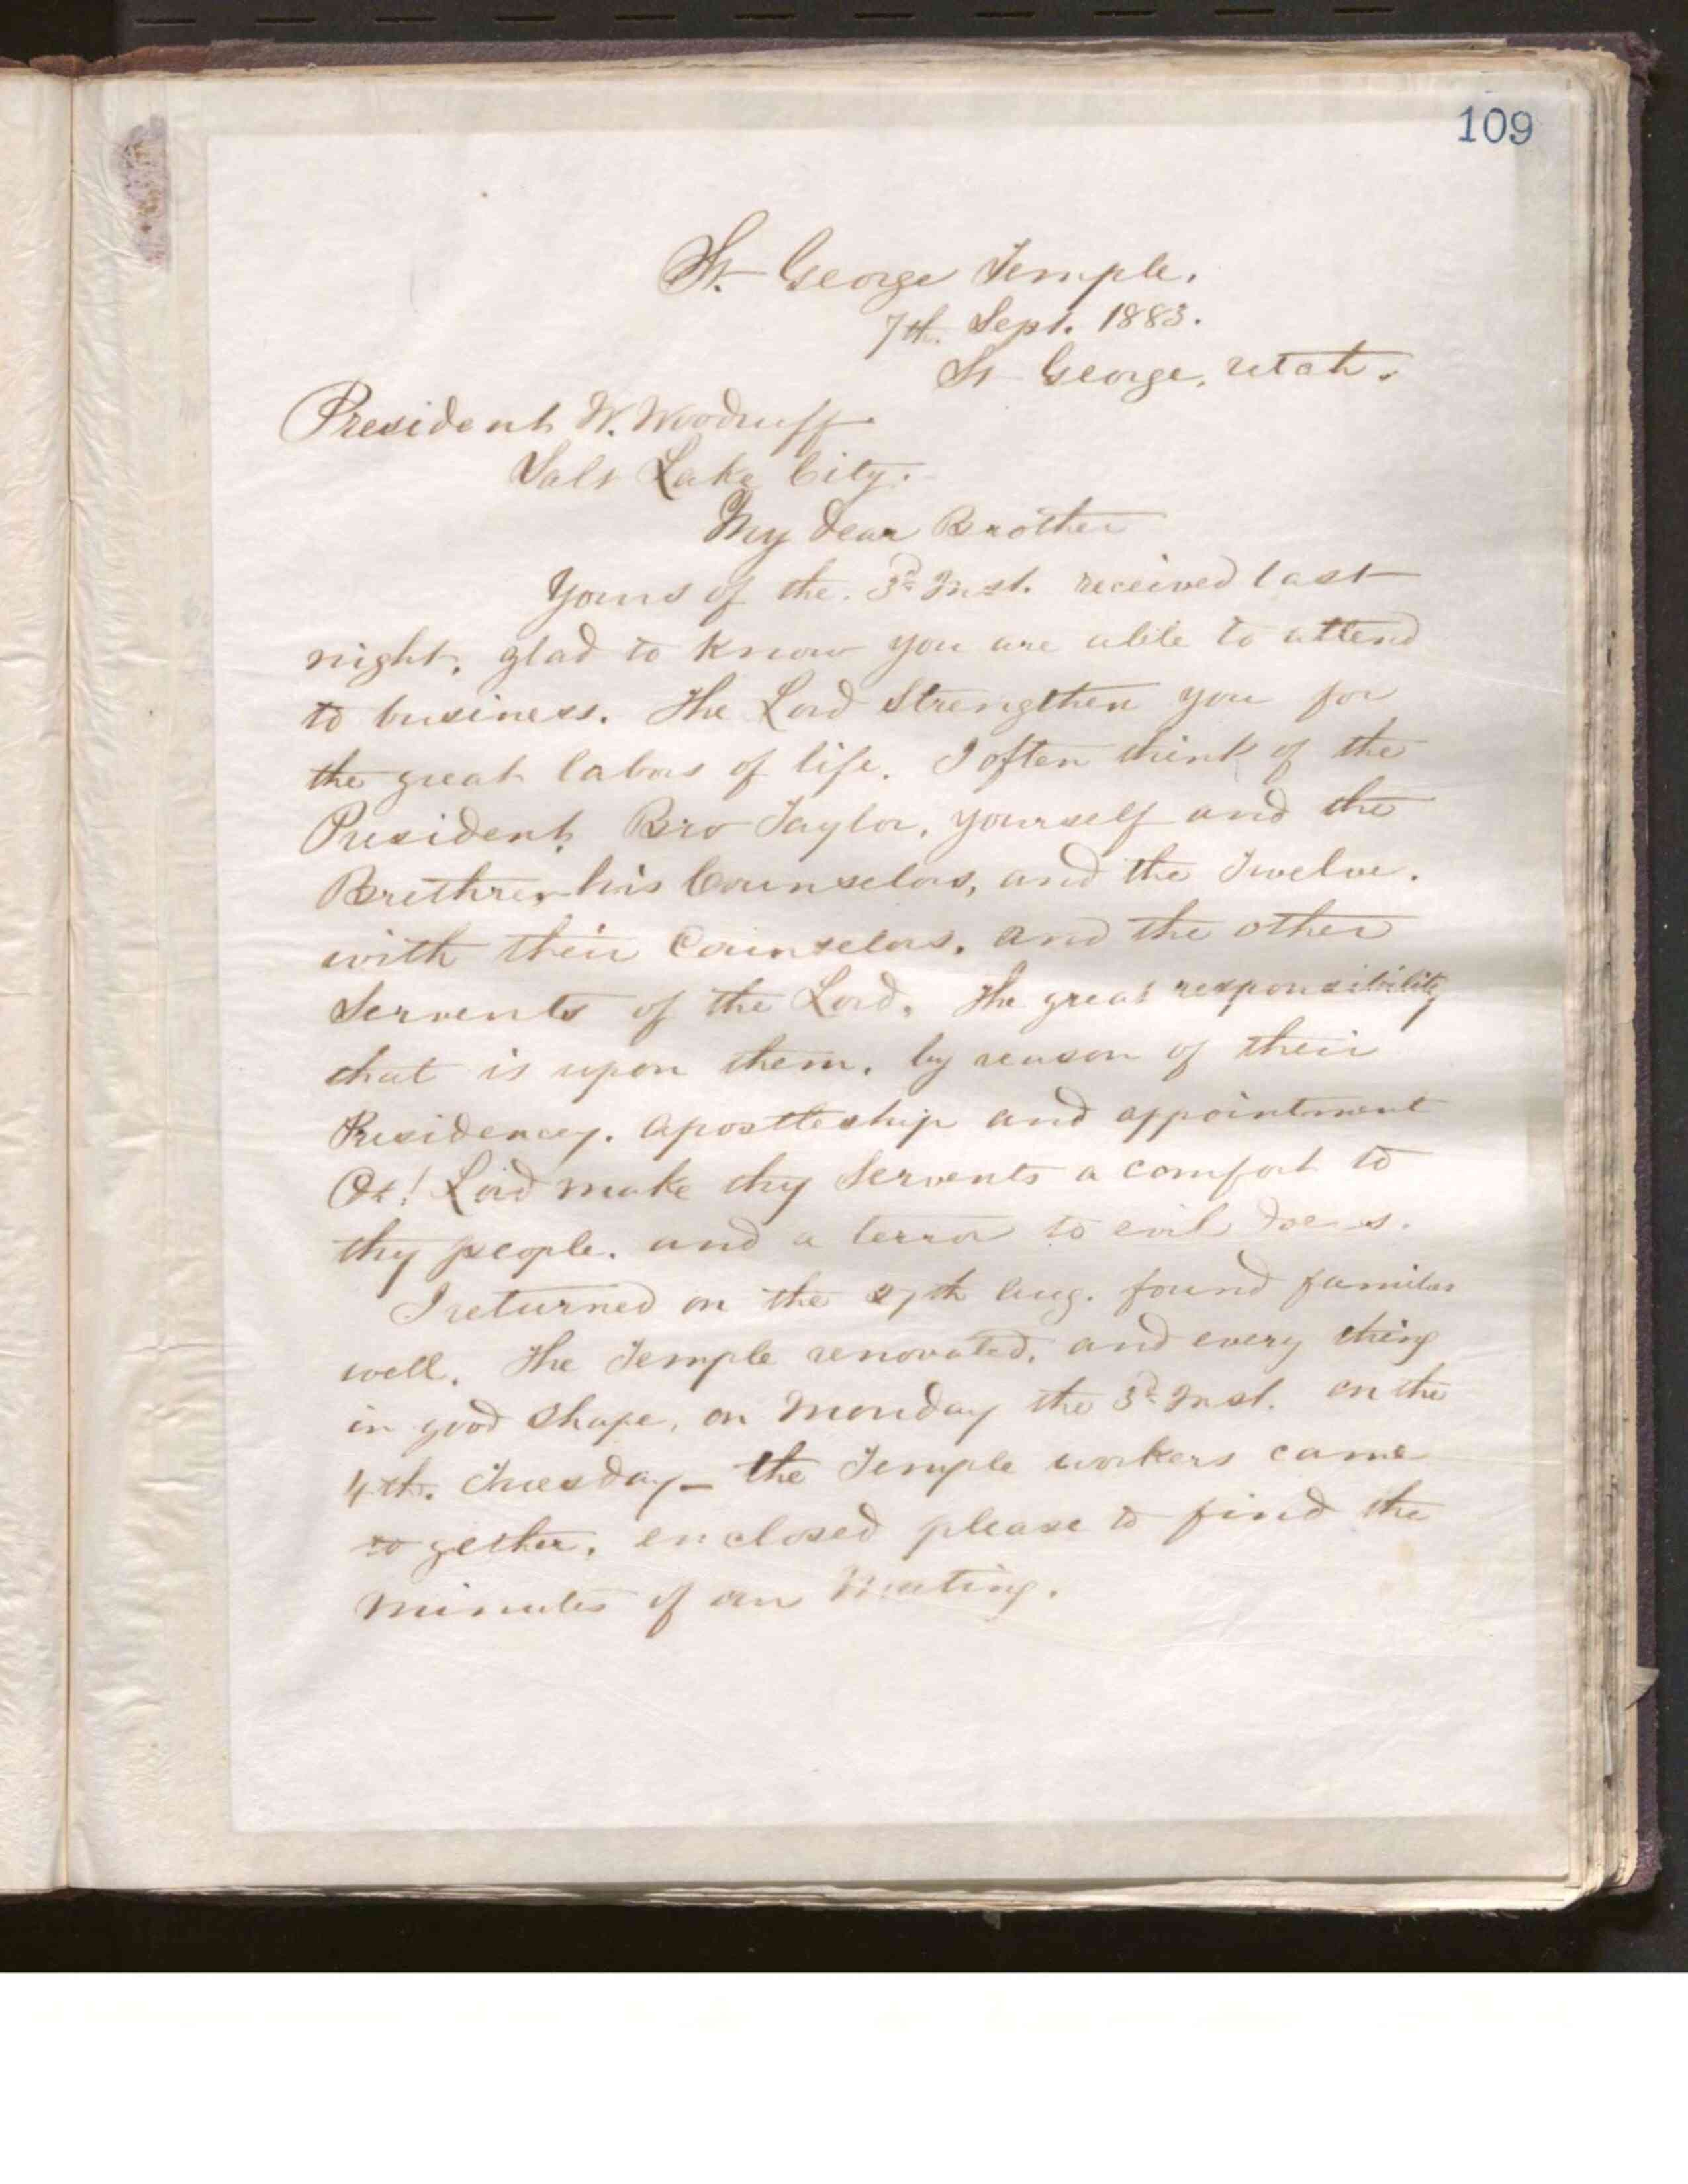 109
St. George Temple.
7th. Sept. 1883.
St George, Utah.
President W. Woodruff
Salt Lake City.
My dear Brother
Yours of the. 3d Inst. received last
night, glad to know you are able to attend
to business. The Lord Strengthen you for
the great labors of life. I often think of the
President, Bro Taylor, yourself and the
Brethren his Counselors, and the Twelve.
with their Counselors. and the other
Servents of the Lord. The great responsibility
that is upon them. by reason of their
Presidency. Apostleship and appointment
Oh! Lord make thy Servents a comfort to
thy people. and a terror to evil doers.
I returned on the 27th Aug. found families
well. The Temple renovated, and every thing
in good shape, on Monday the 3d Inst. on the
4th. Tuesday - the Temple workers came
to gether. enclosed please to find the
minutes of our Meeting.